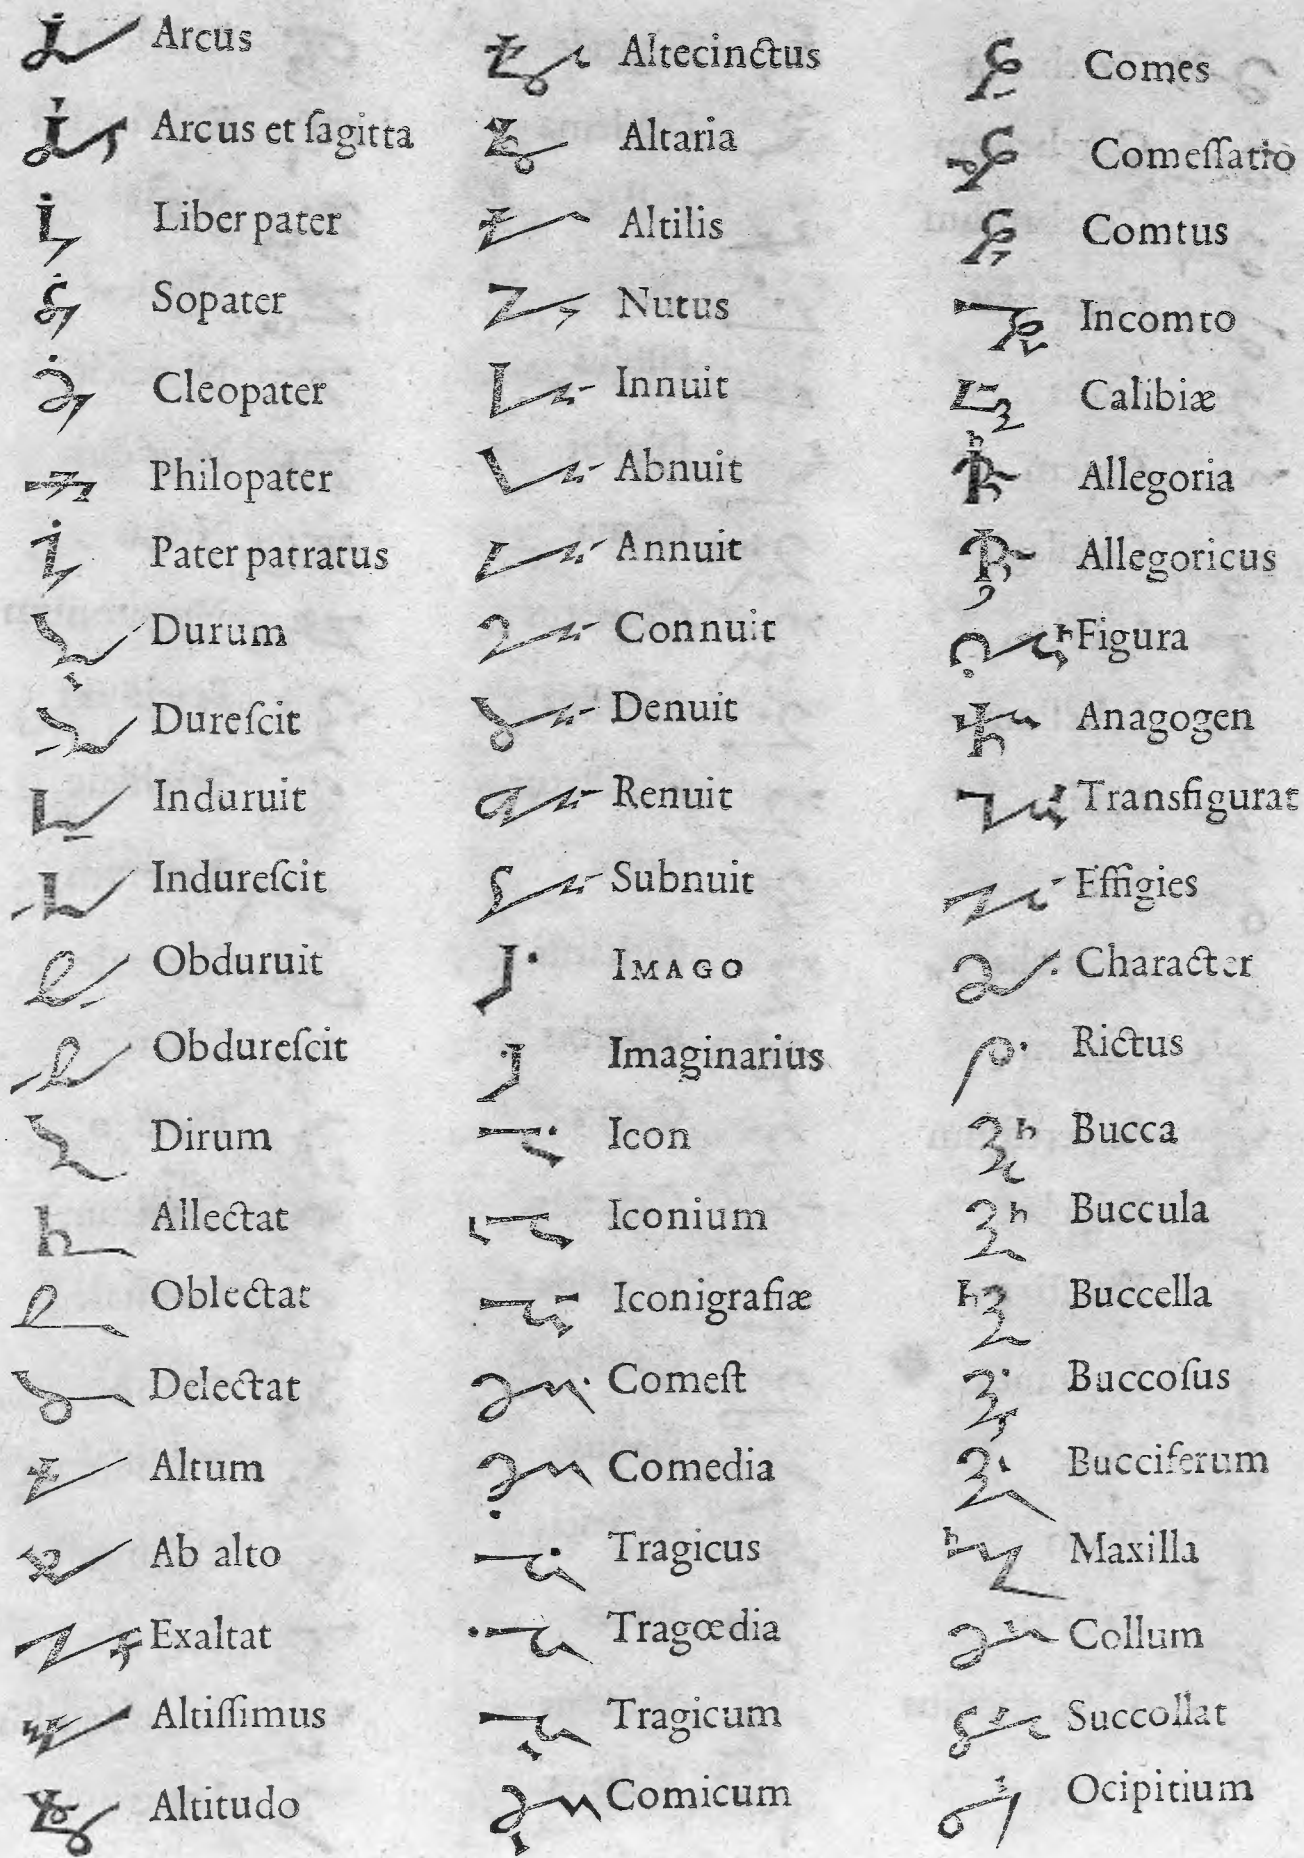 Arcus
Arcus et ſagitta
Liber pater
Sopater
Cleopater
Philopater
Pater patratus
Durum
Dureſcit
Induruit
Indureſcit
Obduruit
Obdureſcit
Dirum
Allectat
Oblectat
Delectat
Altum
Ab alto
Exaltat
Altiſſimus
Altitudo
Altecinctus
Altaria
Altilis
Nutus
Innuit
Abnuit
Annuit
Connuit
Denuit
Renuit
Subnuit
IMAGO
Imaginarius
Icon
Iconium
Iconigrafiæ
Comeſt
Comedia
Tragicus
Tragœdia
Tragicum
Comicum
Comes
Comeſſatio
Comtus
Incomto
Calibiæ
Allegoria
Allegoricus
Figura
Anagogen
Transfigurat
Effigies
Character
Rictus
Bucca
Buccula
Buccella
Buccoſus
Bucciferum
Maxilla
Collum
Succollat
Ocipitium